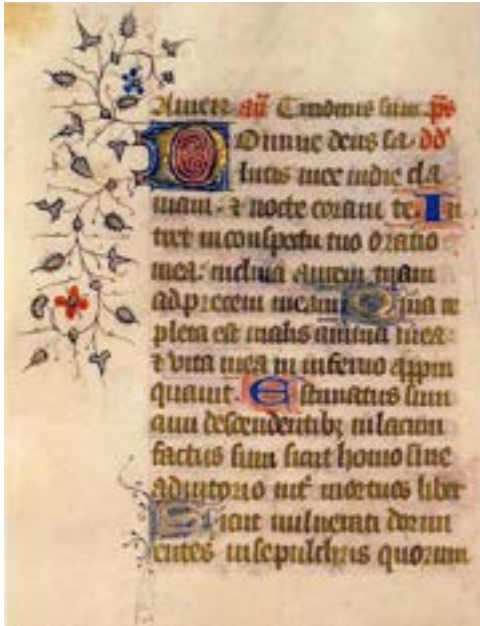 Amen an sum ps
Domine deus sa dd
lutis mee in die cla
maui. ⁊ nocte coram te. In
tret in conspectu tuo oratio
mea: inclina aurem tuam
ad precem meam Quia re
pleta est malis anima mea:
⁊ vita mea in inferno appin
quauit. Estimatus sum
cum descendentibꝫ in lacum
factus sum sicut homo sine
adiutorio int̃ mortuos liber
Sicut uulnerati dormi
entes in sepulchris quorum